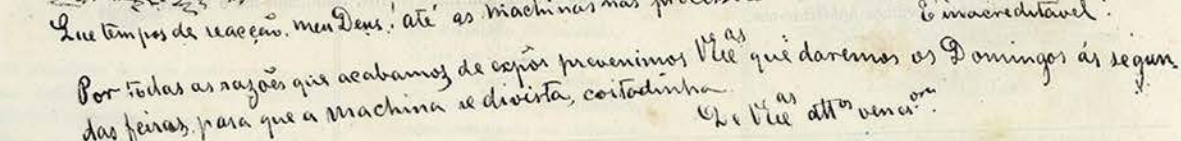 Que tempos de reacção, meu Deus! até as machinas nas É inacreditavel.
Por todas as razões que acabamos de expôr prevenimos VEx.as que daremos os Domingos ás segun-
das feiras, para que a machina se divirta, coitadinha.
De VEx.as att.os vener.ores